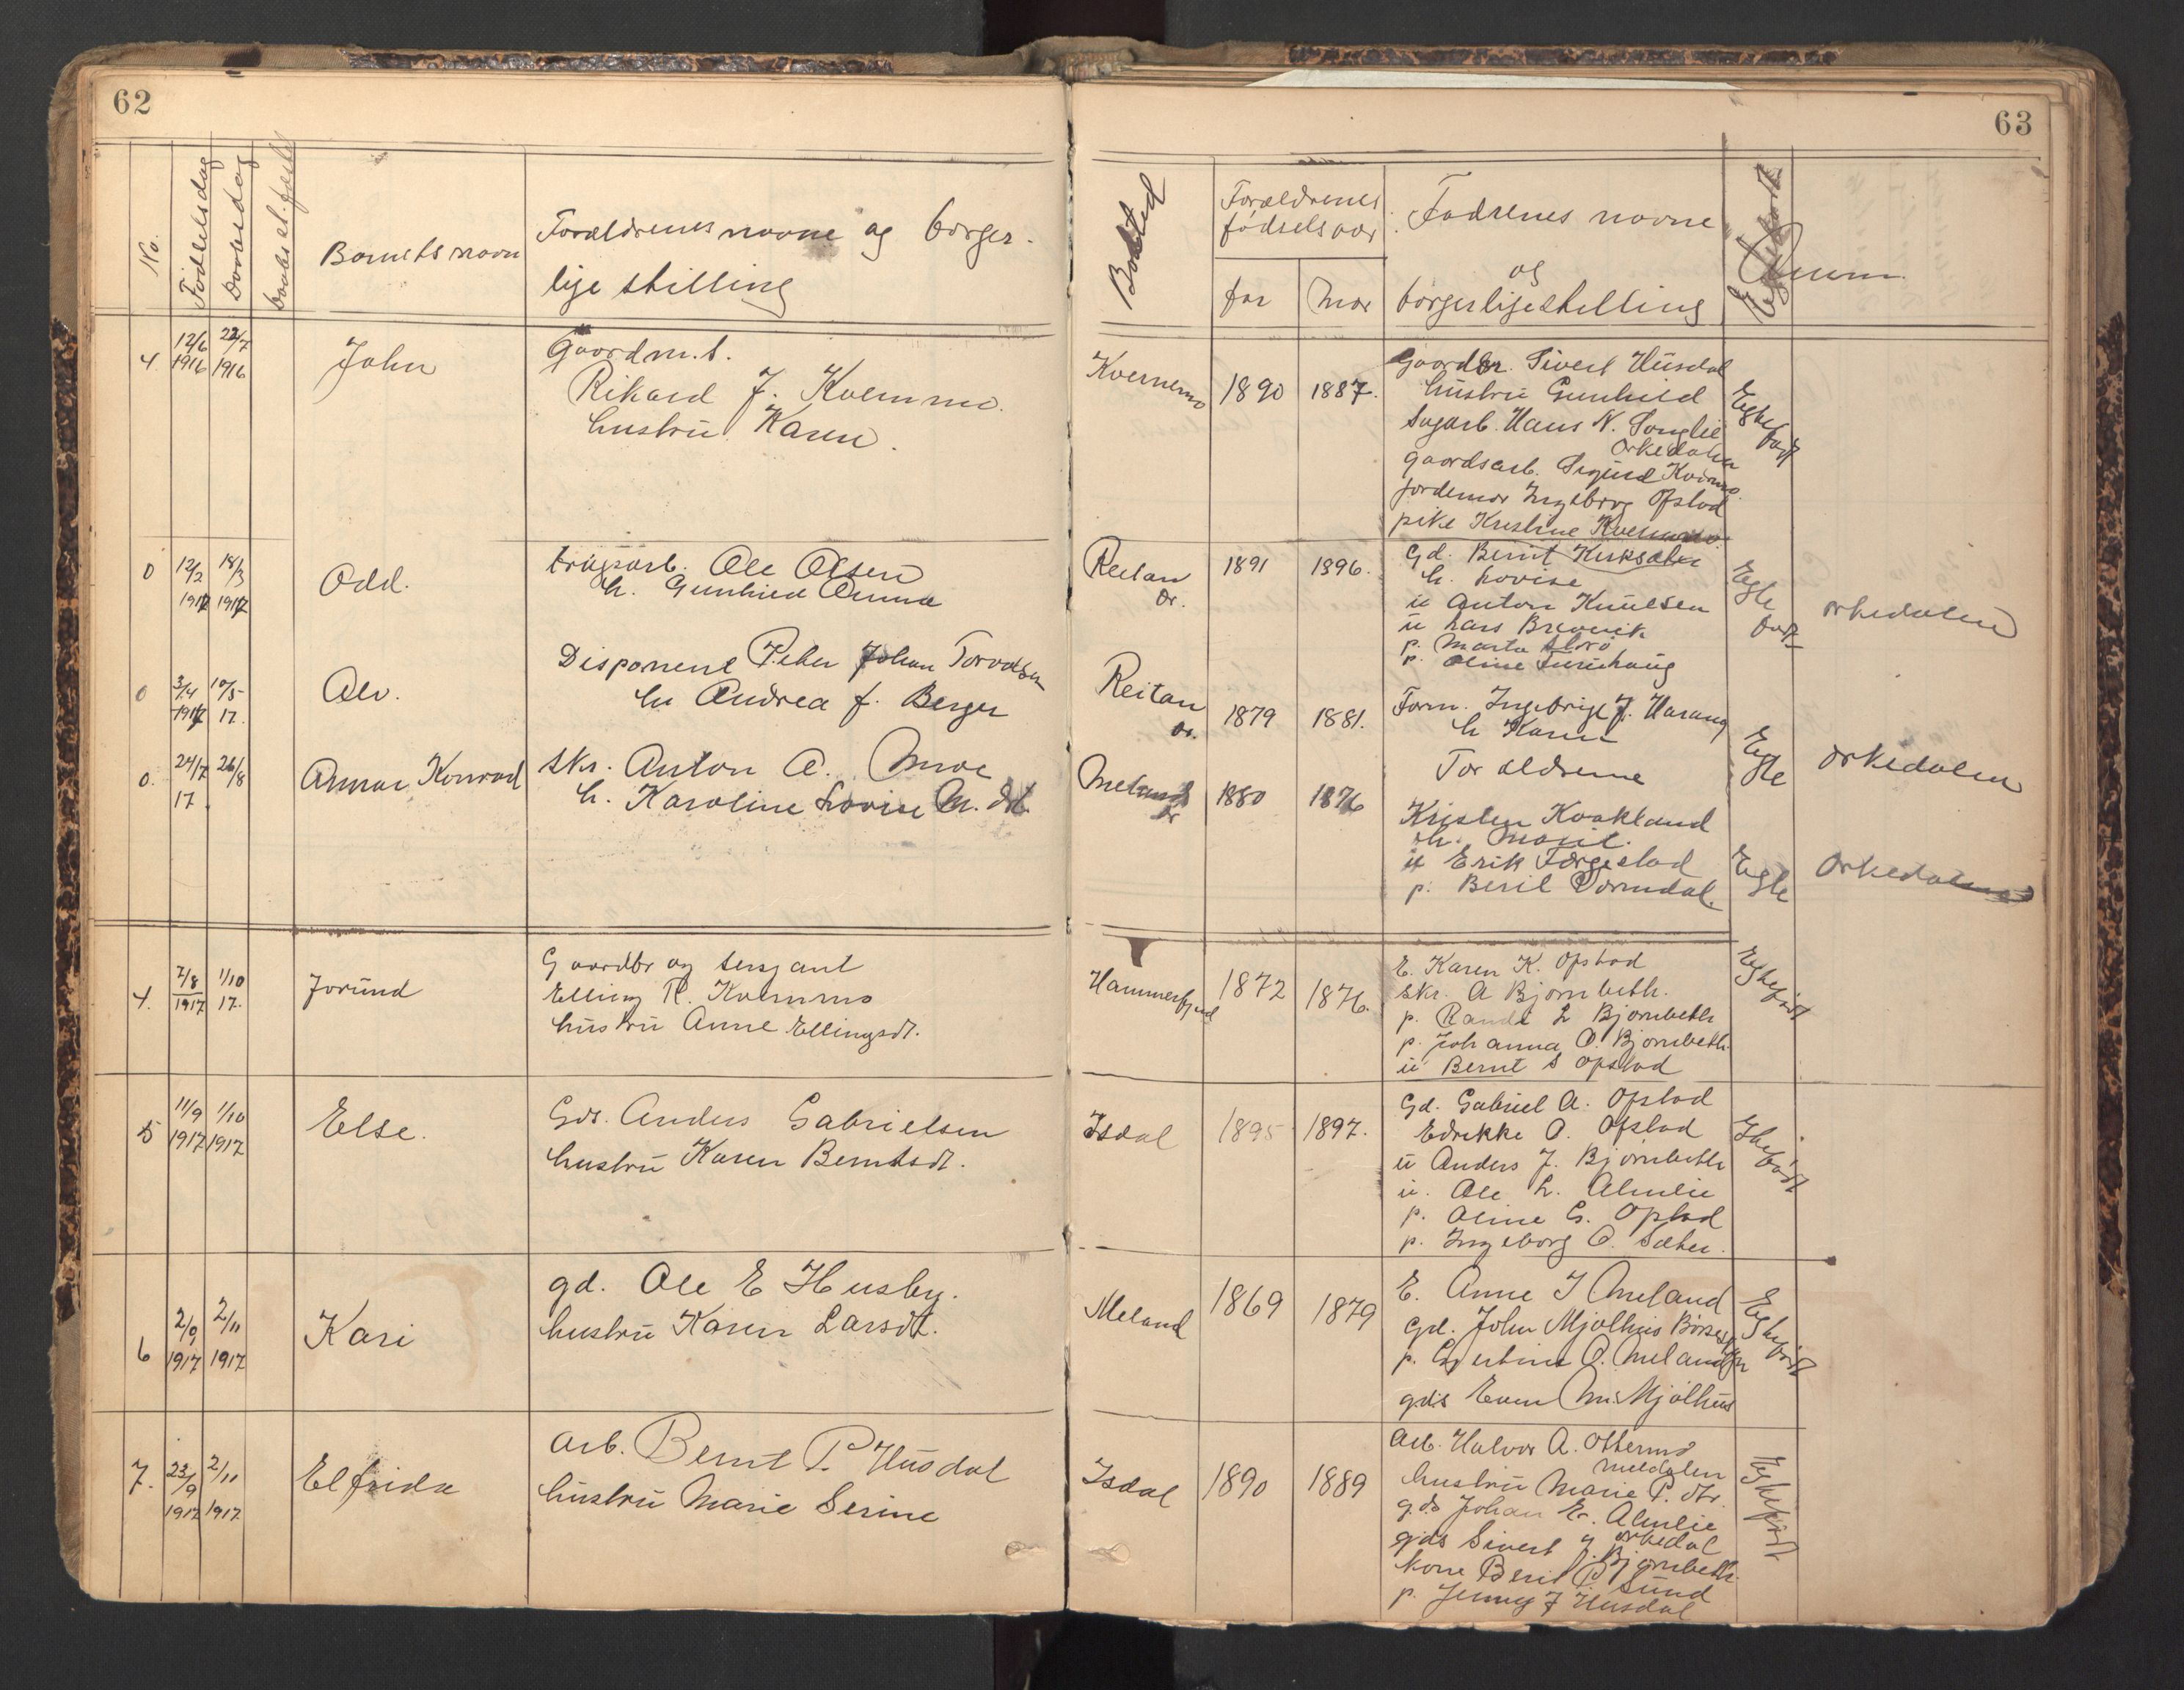 62
No.
Födselsdag
Daabsdag
Daabs st.
Barnets navn
Foraldrenes navne og borger-
lige stilling
4.
12/6
1916
22/7
1916
John
Gaardm.s.
Rikard J. Kvernmo.
hustru Karen.
0
12/2
1917
18/3
1917
Odd.
Ole Olsen
h. Gunhild Anna
0
3/4
1917
10/5
17.
Alv.
Disponent Peter Johan Torvaldsen
h. Andrea f. Berger
0.
24/7
17
26/8
Annar Konrad
Skr. Anton A. Moe
h. Karoline Lovise M. dt.
4.
7/8
1917
1/10
17.
Jorund
Gaardbr og sersjant
Elling R. Kvernmo
hustru Anne Ellingsdt.
5
11/9
1917
1/10
1917
Else.
Gds. Anders Gabrielsen
hustru Karen Berntsdt.
6
2/9
1917
2/11
1917
Kari
gd. Ole E Husby.
hustru Karen Larsdt.
7.
23/9
1917
2/11
1917
Elfrida
arb. Bernt P. Husdal
hustru Marie Serine
63
Bosted
Foraldrenes
fødselsaar
far
Mor
Fadrenes navne
og
borgerlige stilling
Anm.
Kvernmo
1890
1887.
Gaardbr. Sivert Husdal
hustru Gunhild
Sagarb. Hans N. Songlie
Orkedalen
gaardsarb. Sigurd Kvernmo.
jordemor Ingeborg Opstad
pike Kristine Kvernmo.
Egtefødt
Reitan
Or.
1891
1896.
Gd. Bernt Kirksæter
h. Lovise
u Anton Knutsen
u Lars Brevik
p. Marta
p. Oline
Egte
født
Orkedalen
Reitan
Or.
1879
1881.
Form. Ingebrigt J. Harang
h Karen
Foraldrene
Egte
Orkedalen
Meland
Or
1880
1876
Kristen Kaakland
h. Marit.
u Erik Forgestad
p. Beril Dorndal.
Egte
Orkedalen
Hammerfjeld
1872
1876.
E. Karen K. Opstad
Skr. A Bjørnbeth.
p. Randi L Bjørnbeth
p. Johanna O. Bjørnbeth.
u Bernt S Opstad
Egtefødt
Isdal
1895
1897.
Gd. Gabriel A. Opstad
Edrikke O. Opstad
u Anders J. Bjørnbeth
u. Ole L. Almlie
p. Oline G. Opstad
p. Ingeborg O. Sæther.
Meland
1869
1879
E. Anne I Meland
Gd. John Mjølhus Børseskgn
p. O. Meland
gds Even M. Mjølhus
Egtefødt
Isdal
1890
1889
Arb. Halvor A. Ottermo
Meldalen
hustru Marie P. dtr.
gds Johan E. Almlie
Orkedal
gds Sivert J. Bjørnbeth.
kone Beril P. Sund
p. Jenny J Husdal
Egtefødt